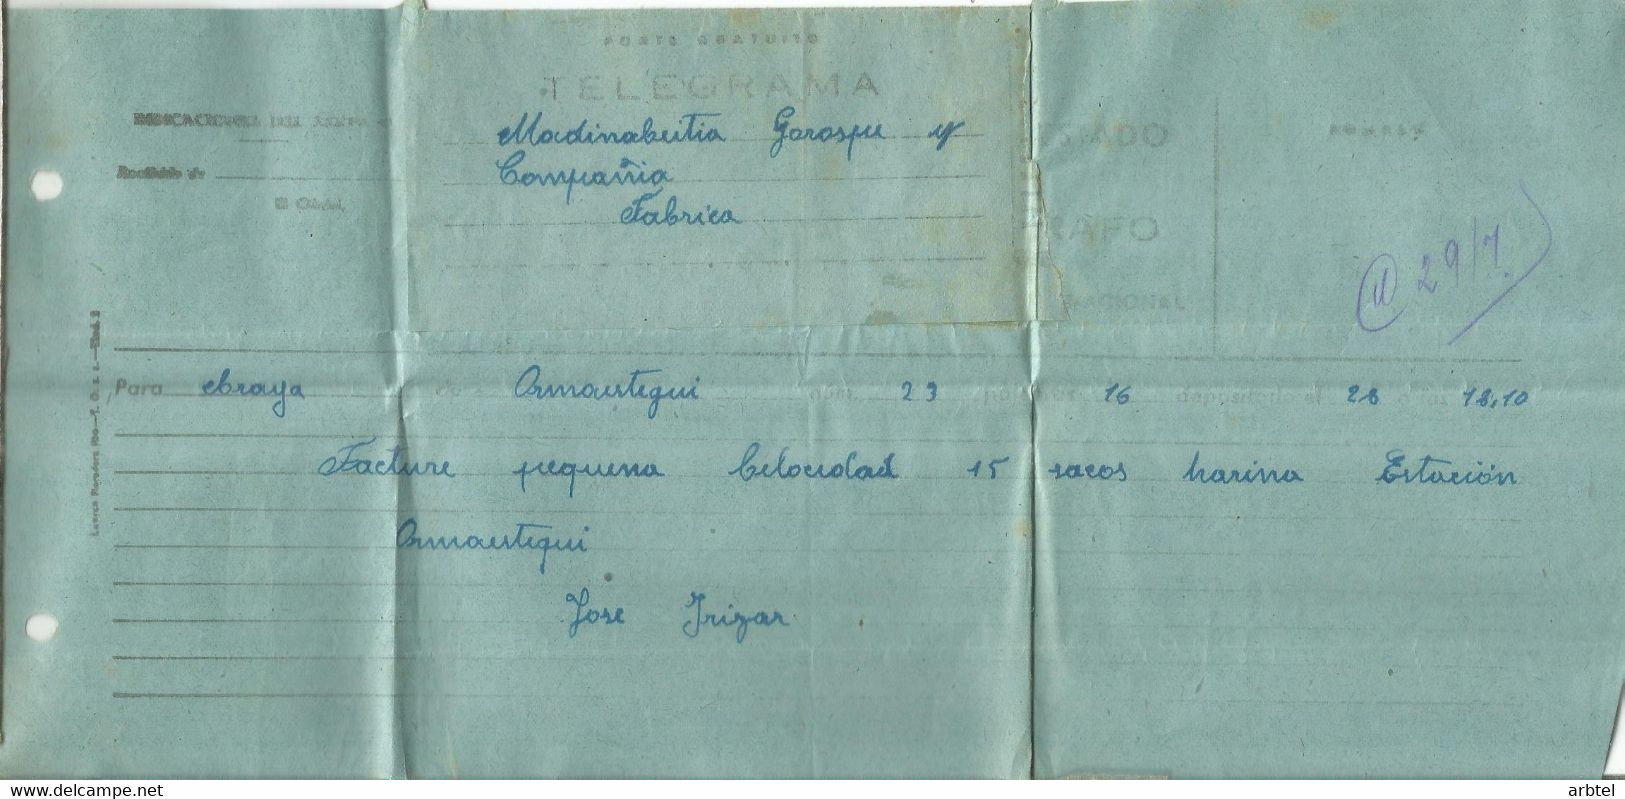 PORTE GRATUITO
TELEGRAMA
INDICACIONES DEL
Recibido de
Madinabeitia Gorospe y
Compañia
Fabrica
NACIONAL
29/7
Para ebraya de Ormaiztegui núm 23 palabras 16 depositado el 28 a las 18,10
Facture pequena belocidad 15 sacos harina Estación
Ormaiztegui
Jose Irizar
www.delcampe.net
arbtel